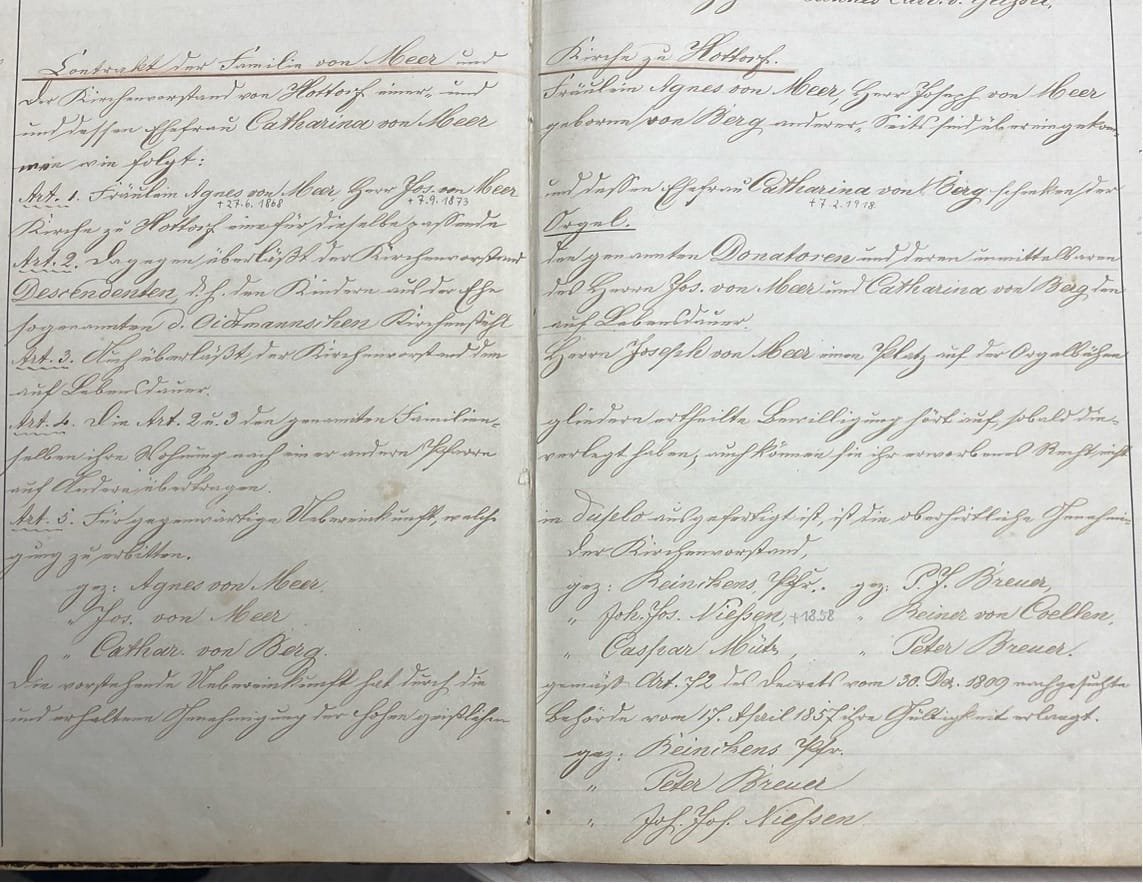 Contrakt der Familie von Meer und Kirche zu Hottorf.
Der Kirchenvorstand von Hottorf einer- und Fräulein Agnes von Meer, Herr Joseph von Meer
und dessen Ehefrau Catharina von Meer geborne von Berg anderer-Seits sind übereingekom-
men wie folgt:
Art. 1. Fräulein Agnes von Meer, Herr Jos. von Meer und dessen Ehefrau Catharina von Berg schenken der
+27.6.1868 +7.9.1873 +7.2.1918
Kirche zu Hottorf eine für dieselbe passende Orgel.
Art. 2. Dagegen überläßt der Kirchenvorstand den genannten Donatoren und deren unmittelbaren
Descendenten, d.h. den Kindern aus der Ehe des Herrn Jos. von Meer und Catharina von Berg den
sogenannten d. Oidtmannschen Kirchenstuhl auf Lebensdauer.
Art. 3. Auch überläßt der Kirchenvorstand dem Herrn Joseph von Meer einen Platz auf der Orgelbühne
auf Lebensdauer.
Art. 4. Die Art. 2 u. 3 den genannten Familien- gliedern ertheilte Bewilligung hört auf, sobald die-
selben ihre Wohnung nach einer andern Pfarre verlegt haben, auch können sie ihr erworbenes Recht nicht
auf Andere übertragen.
Art. 5. Für gegenwärtige Uebereinkunft, welche in duplo ausgefertigt ist, ist die oberhirtliche Genehmi-
gung zu erbitten. Der Kirchenvorstand,
gez: Agnes von Meer. gez: Reinckens, Pfr. gez: P. J. Breuer,
" Jos. von Meer " Joh. Jos. Nießen, +1858 " Reiner von Coellen,
" Cathar. von Berg. " Caspar Mütz, " Peter Breuer.
Die vorstehende Uebereinkunft hat durch die gemäß Art. 72 des Decrets vom 30. Dez. 1809 nachgesuchte
und erhaltene Genehmigung der hohen geistlichen Behörde vom 17. April 1857 ihre Gültigkeit erlangt.
gez: Reinckens Pfr.
" Peter Breuer
" Joh. Jos. Nießen